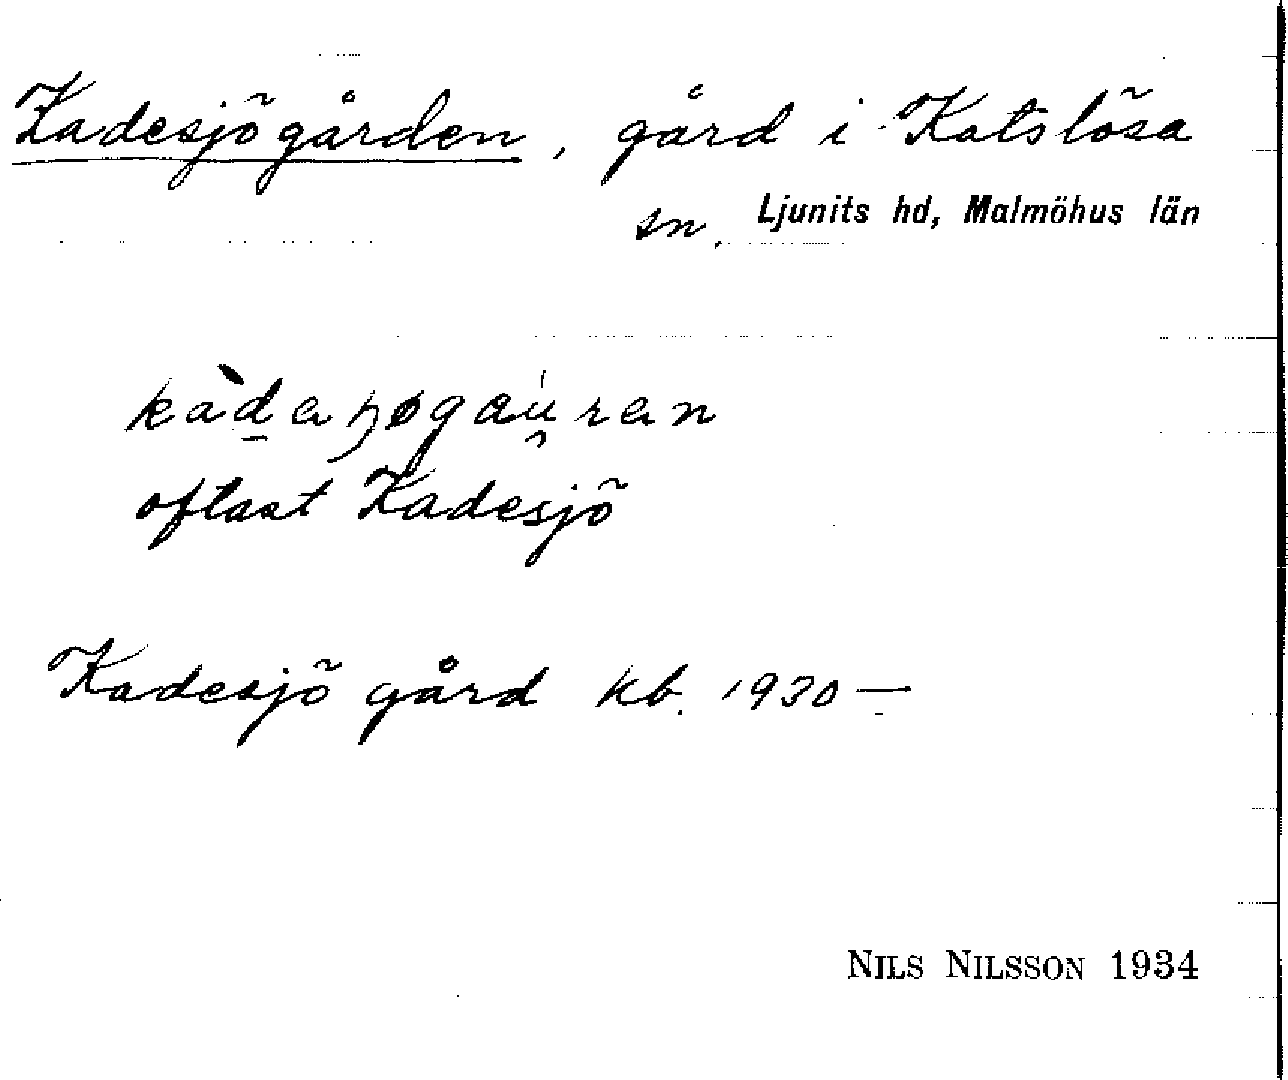 Kadesjögården, gård i Katslösa
sn. Ljunits hd, Malmöhus län
oftast Kadesjö
Kadesjö gård kb. 1930—
NILS NILSSON 1934